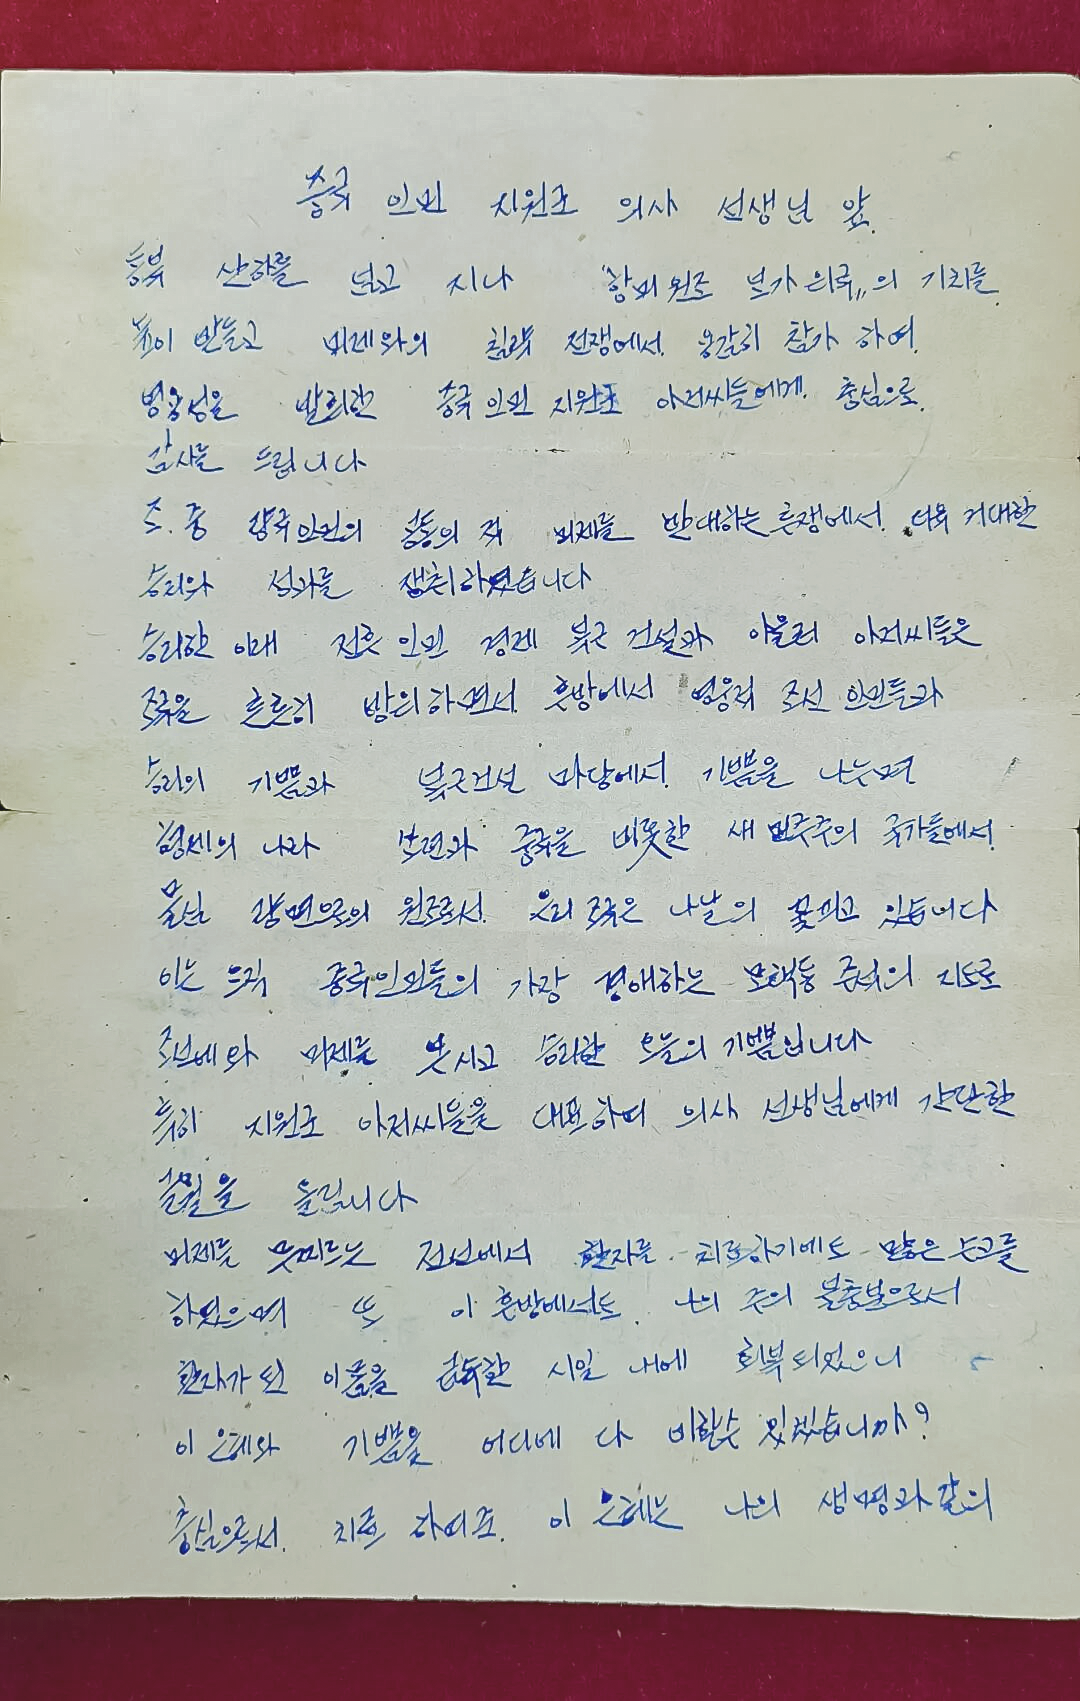 중국 인민 지원군 의사 선생님 앞.
동북 산하를 넘고 지나 "항미 원조 보가 위국„의 기치를
높이 받들고 미제와의 침략 전쟁에서. 용감히 참가 하여.
영웅성을 발휘한 중국 인민 지원군 아저씨들에게. 충심으로.
감사를 드립니다
조. 중 량국 인민의 공동의 적 미제를 반대하는 투쟁에서. 더욱 거대한
승리와 성과를 쟁취하였습니다
승리한 이래 전후 인민 경제 복구 건설과 아울러 아저씨들은
조국을 튼튼히 방위하면서. 후방에서 영웅적 조선 인민들과
승리의 기쁨과 복구건설 마당에서. 기쁨을 나누며
형제의 나라 쏘련과 중국을 비롯한 새 민주주의 국가들에서.
물심 량면으로의 원조로서. 우리 조국은 나날의 꽃피고 있습니다
이는 오직 중국인민들의 가장 경애하는 모택동 주석의 지도로
조선에와 미제를 승리한 오늘의 기쁨입니다
특히 지원군 아저씨들을 대표하여 의사 선생님에게 간단한
올립니다
미제를 무찌르는 전선에서 환자를 치료하기에도 많은 수고를
하였으며 또 이 후방에서도. 나의 주의 불충분으로서
환자가 된 이몸을 시일 내에 회복되었으니
이 은혜와 기쁨을 어디에 다 비할수 있겠습니까?
충심으로서. 치료 하여준. 이 은혜는 나의 생명과 같의